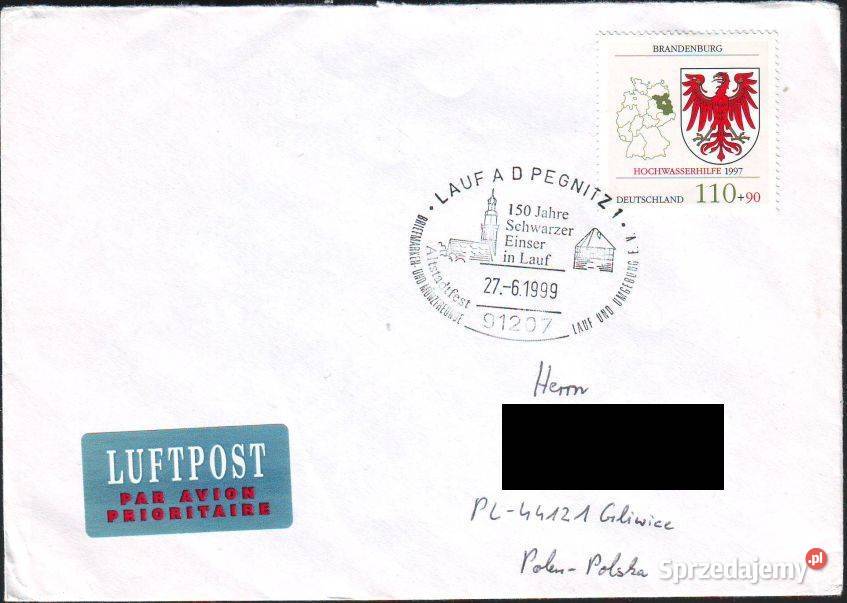 BRANDENBURG
HOCHWASSERHILFE 1997
DEUTSCHLAND 110+90
LAUF A D PEGNITZ 1
150 Jahre
Schwarzer
Einser
in Lauf
Altstadtfest
27.-6.1999
91207
BRIEFMARKEN- UND MÜNZFREUNDE
LAUF UND UMGEBUNG E.V.
Herrn
PL-44121 Gliwice
Polen-Polska
LUFTPOST
PAR AVION
PRIORITAIRE
Sprzedajemy.pl